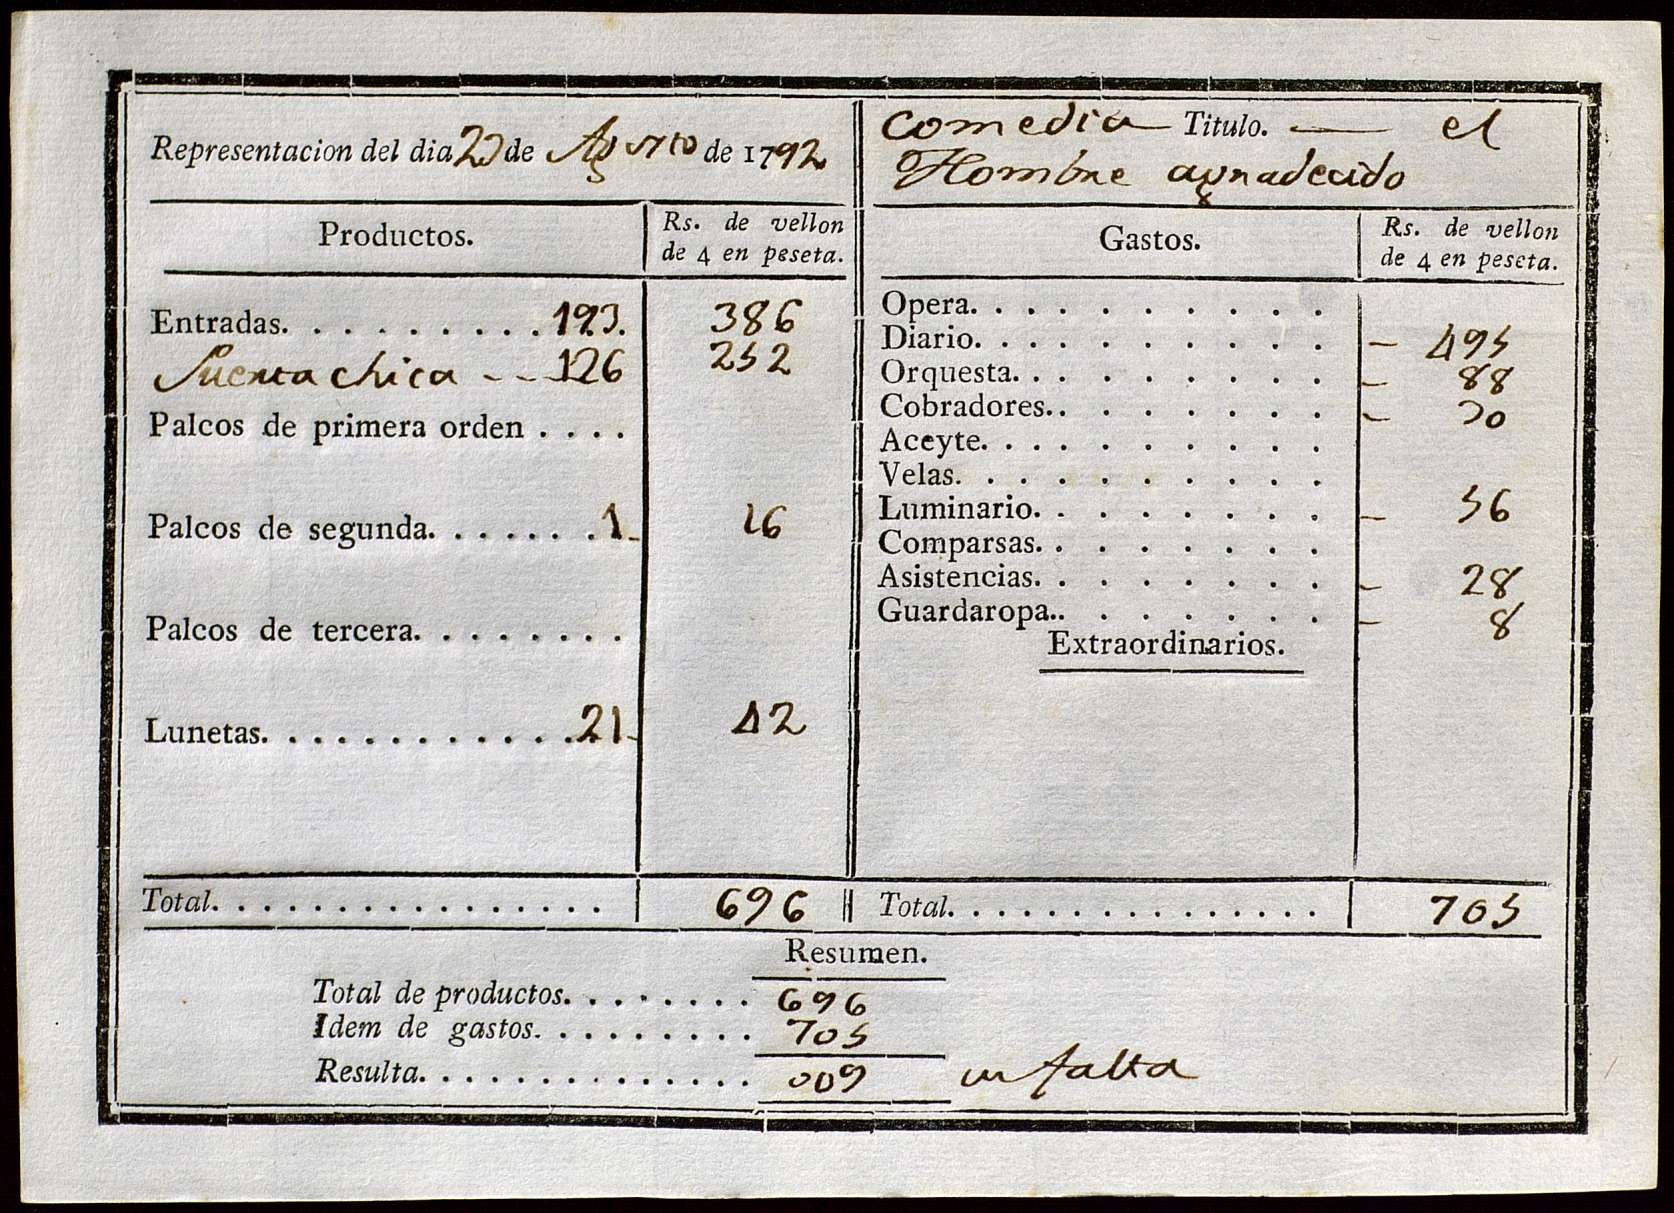 Representacion del dia 23 de Agosto de 1792
Comedia Titulo. — el
Hombre agradecido
Productos. Rs. de vellon
de 4 en peseta.
Gastos. Rs. de vellon
de 4 en peseta.
Entradas. . . . . . . . . . 193. 386
Puerta chica - - - 126 252
Palcos de primera orden . . . .
Palcos de segunda. . . . . . . 1 16
Palcos de tercera. . . . . . . . .
Lunetas. . . . . . . . . . . . . 21 42
Opera. . . . . . . . . .
Diario. . . . . . . . . . - 495
Orquesta. . . . . . . . . - 88
Cobradores. . . . . . . . - 30
Aceyte. . . . . . . . . .
Velas. . . . . . . . . .
Luminario. . . . . . . . - 56
Comparsas. . . . . . . .
Asistencias. . . . . . . . - 28
Guardaropa. . . . . . . . - 8
Extraordinarios.
Total. . . . . . . . . . . . . . . . . 696
Total. . . . . . . . . . . . . . . . 705
Resumen.
Total de productos. . . . . . . . 696
Idem de gastos. . . . . . . . . 705
Resulta. . . . . . . . . . . . . . 009 en falta